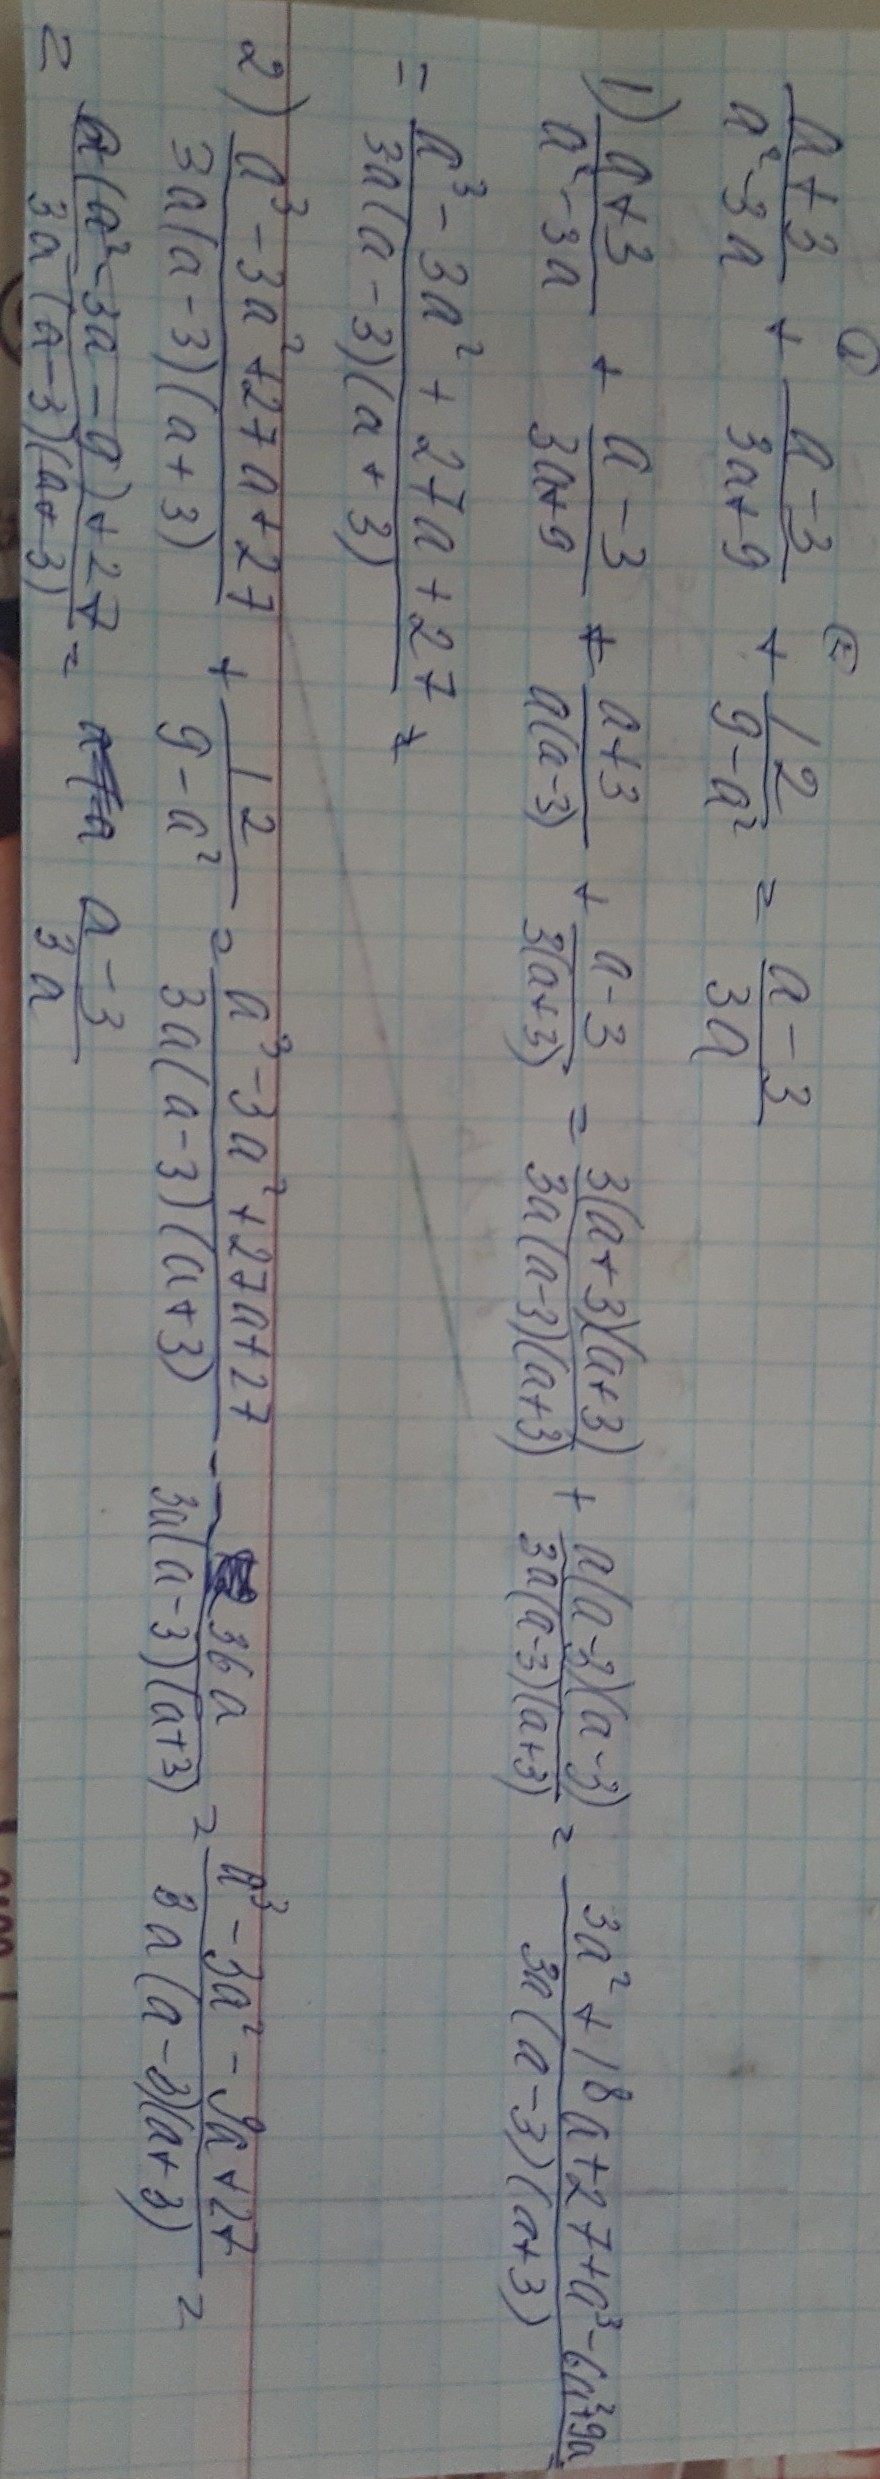 ① ②
a+3/a²-3a + a-3/3a+9 + 12/9-a² = a-3/3a
1) a+3/a²-3a + a-3/3a+9 = a+3/a(a-3) + a-3/3(a+3) = 3(a+3)(a+3)/3a(a-3)(a+3) + a(a-3)(a-3)/3a(a-3)(a+3) = 3a²+18a+27+a³-6a²+9a/3a(a-3)(a+3) =
= a³-3a²+27a+27/3a(a-3)(a+3) =
2) a³-3a²+27a+27/3a(a-3)(a+3) + 12/9-a² = a³-3a²+27a+27/3a(a-3)(a+3) - 36a/3a(a-3)(a+3) = a³-3a²-9a+27/3a(a-3)(a+3) =
= a(a²-3a-9)+27/3a(a-3)(a+3) = a-3/3a